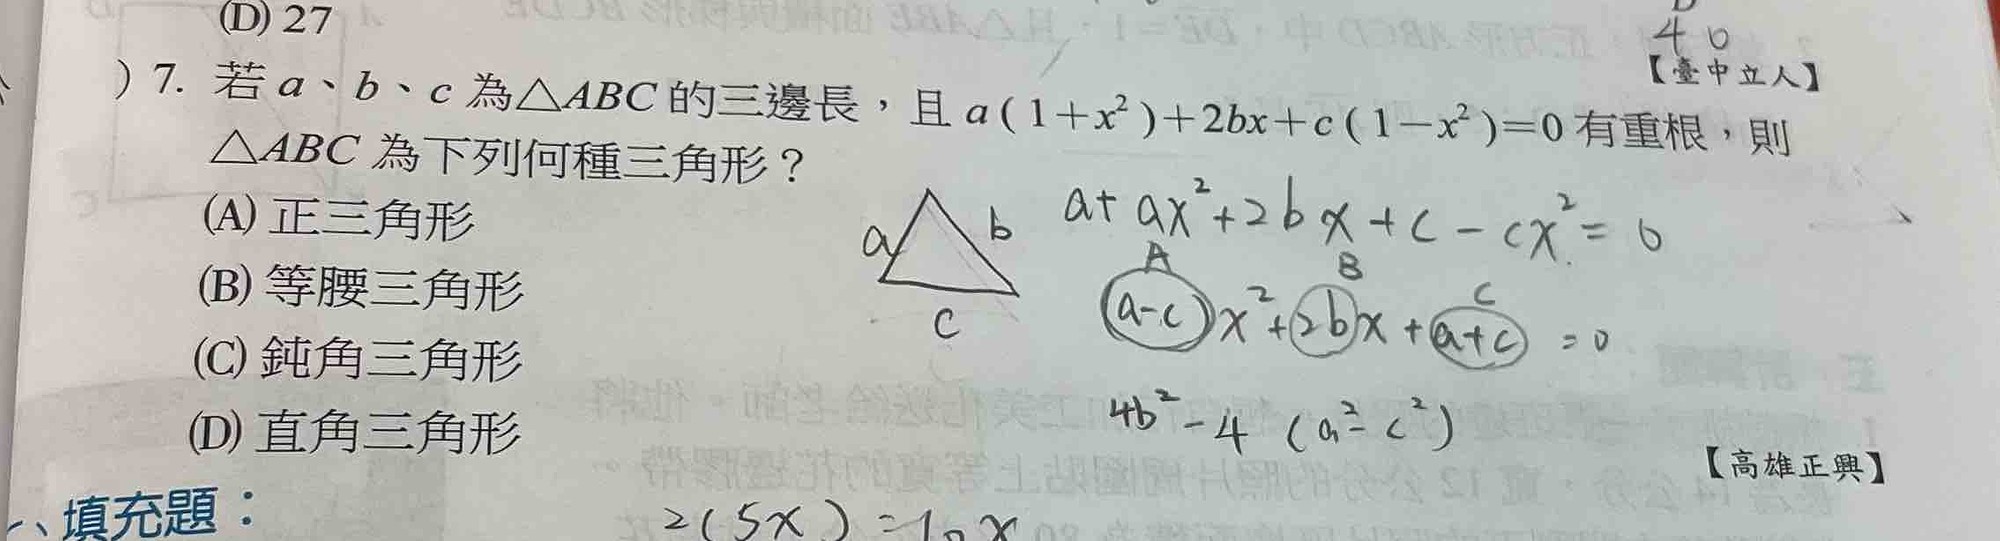 (D) 27
4 0
【臺中立人】
) 7. 若 a、b、c 為△ABC 的三邊長，且 a(1+x²)+2bx+c(1−x²)=0 有重根，則
△ABC 為下列何種三角形？
(A) 正三角形
(B) 等腰三角形
(C) 鈍角三角形
(D) 直角三角形
a b
c
a+ax²+2bx+c−cx²=0
A B C
(a-c)x²+2bx+a+c=0
4b²-4(a²-c²)
【高雄正興】
、填充題：
2(5x)=10x